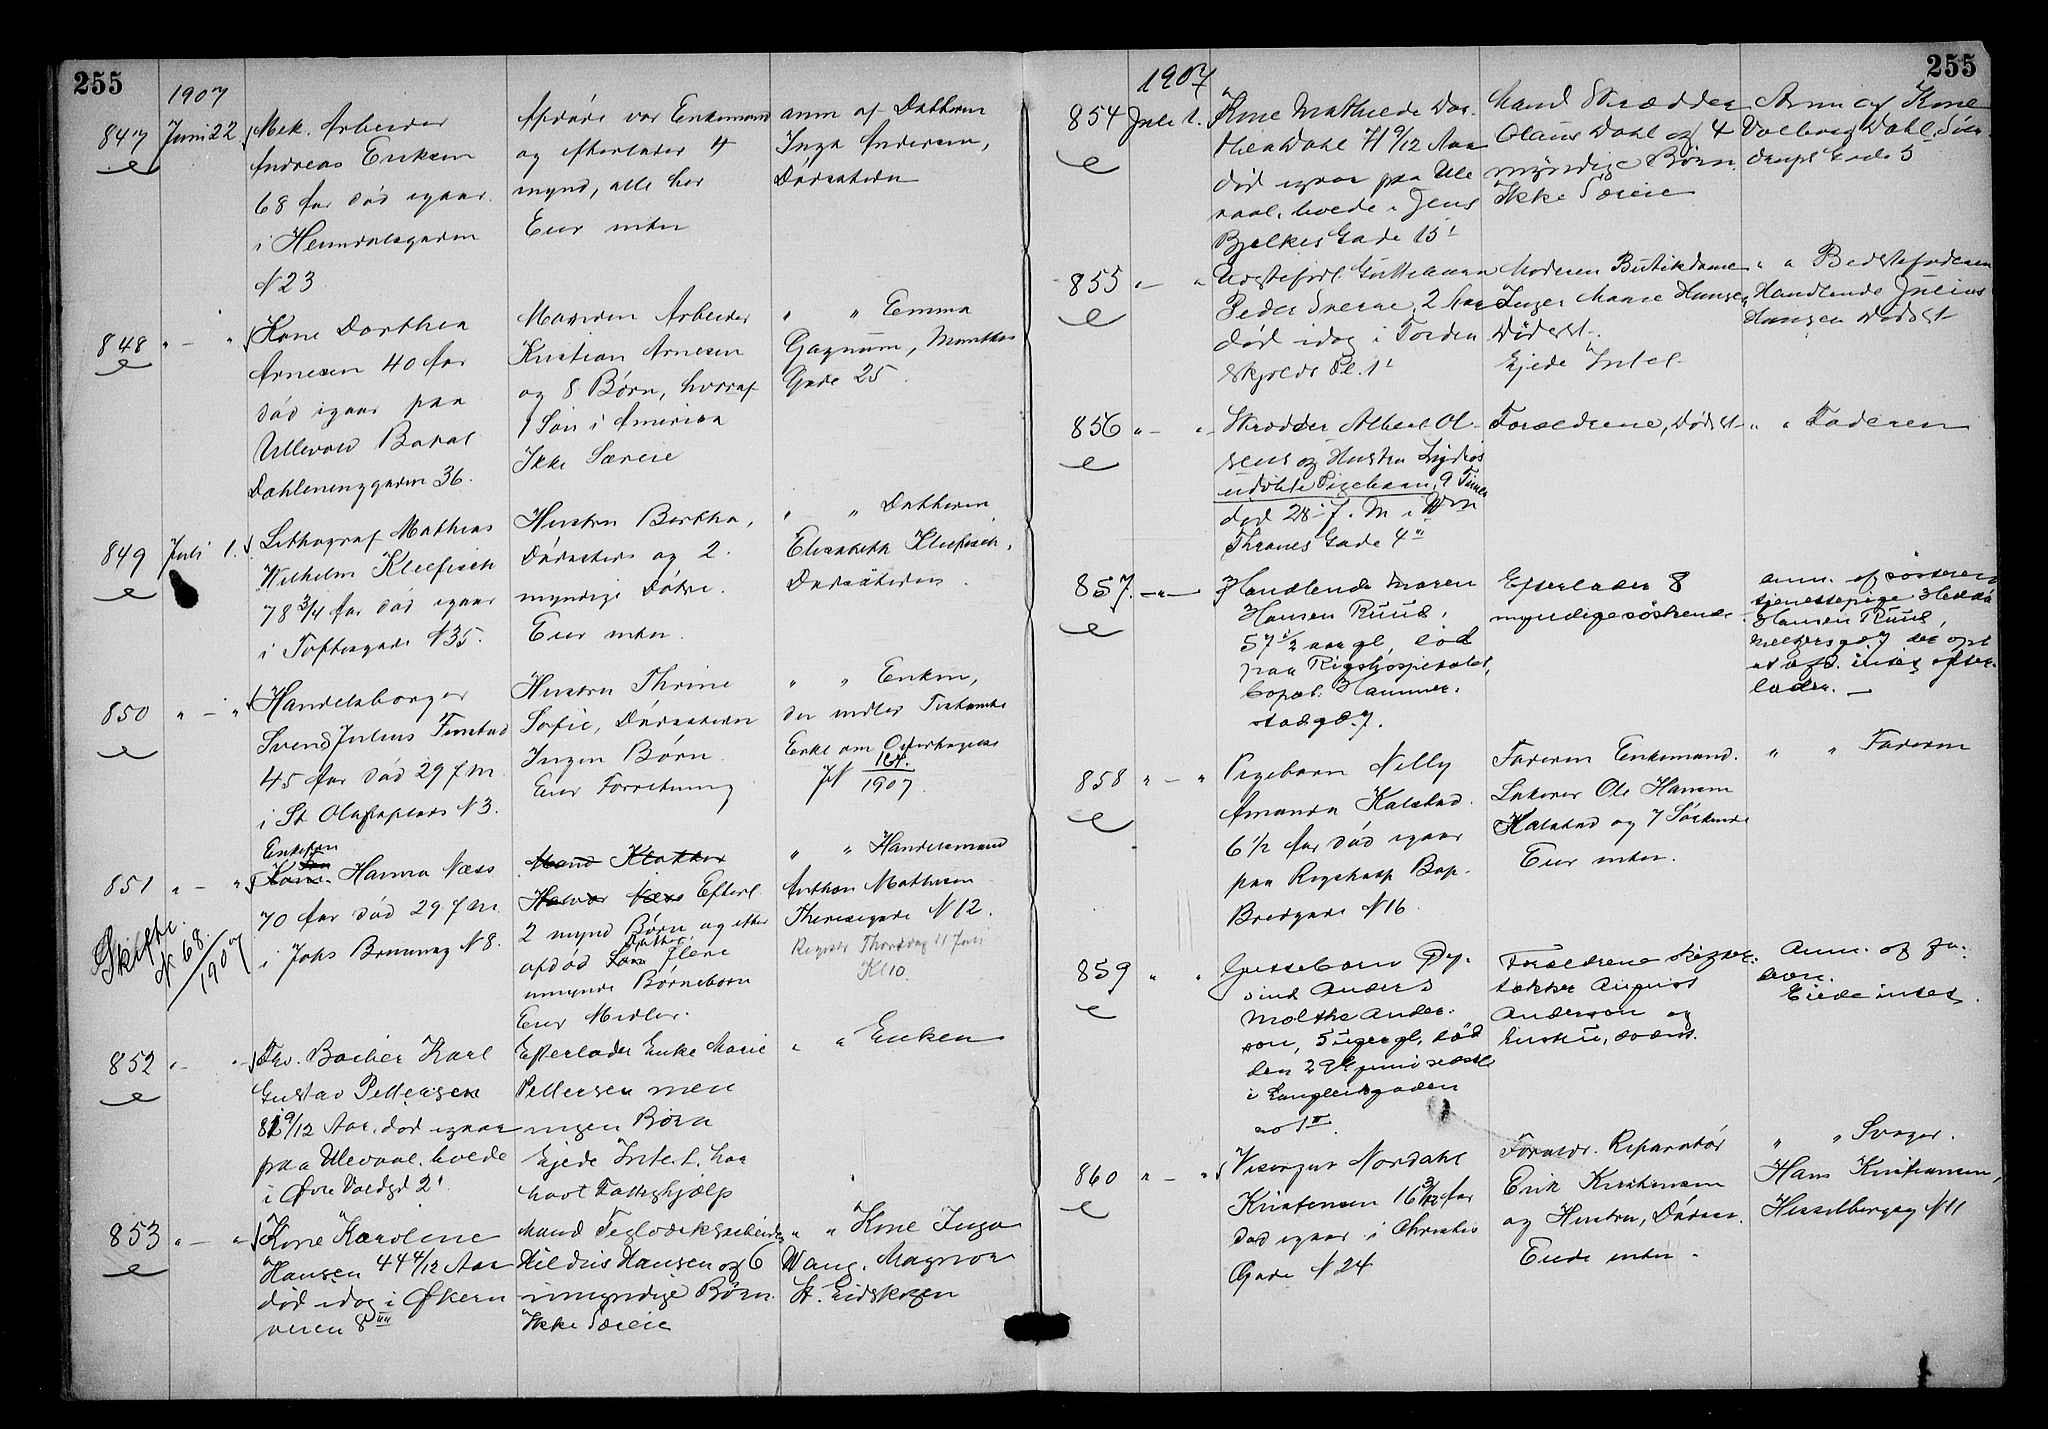 255
1907
847 Juni 22.
Mek. Arbeider
Andreas Eriksen
68 Aar død igaar
i Heimdalsgaden
N 23
Afdøde var Enkemand
og efterlader 4
mynd, alle her
Eier inten
anm af Datteren
Inga Andersen,
Dødsstedn
848 " — "
Kone Dorthea
Arnesen 40 Aar
død igaar paa
Ullevold Bopæl
Dahleneng gaden 36.
Manden Arbeider
Kristian Arnesen
og 8 Børn, hvoraf
1 Søn i Amerika
Ikke Særeie
" " Emma
Gagnum, Munthes
Gade 25.
849 Juli 1.
Lithograf Mathias
Wilhelm Kleefisch
78 3/4 Aar død igaar
i Toftesgade N 35.
Hustru Bertha,
Dødsstedt og 2
myndige Døtre.
Eier inten.
" " Datteren
Elisabeth Kleefisch,
Dødsstedn.
850 " — "
Handelsborger
Svend Julius Finstad
45 Aar død 29 f m.
i St Olafsplads N 3.
Hustru Thrine
Sofie, Dødsstedn
Ingen Børn.
Eier Forretning
" " Enken,
der
Enkl om
JN 167/1907.
851 " — "
Enkefru
Hanna Næss
70 Aar død 29 f m.
i Johs Brunsvg N 8.
Skifte
N 68/1907
Mand Klokker
Halvor Næss Efterl
2 mynd Børn og efter
afdød Datter flere
umynde Børnebørn
Eier Midler.
" " Handelsmand
Anthon Mathisen
Theresegade N 12.
Registr Thorsdag 11 Juli
Kl 10
852 " — "
Fhv. Bødker Karl
Gustav Pettersen
81 9/12 Aar, død igaar
paa Ulevaal, boede
i Øvre Voldgd 2 I
Efterlader Enke Marie
Pettersen men
ingen Børn
Ejede Intet, har
havt Fattighjælp
" " Enken
853 " — "
Kone Karoline
Hansen 44 4/12 Aar
død idag i Økern
veien 8 III
Mand Teglværksarbeider
Hildris Hansen og 6
umyndige Børn.
Ikke Særeie
" " Kone Inga
Wang, Magnor
St. Eidskogen
255
1907
854 Juli 1.
Kone Mathilde Dor-
thea Dahl 71 9/12 Aar
død igaar paa Ule
vaal, boede i Jens
Bjelkes Gade 15 I
Mand Skrædder
Olaus Dahl og 4
myndige Børn.
Ikke Særeie
Anm af Kone
Valborg Dahl, Søn-
drups Gade 5
855 " — "
Uægtefødt Guttebarn
Peder Sverre, 2 Aar
død idag i Torden
skjolds Pl. 1 I
Moderen Butikdame
Inger Marie Hansen
Dødsst.
Ejede Intet
" " Bedstefaderen
Handlende Julius
Hansen Dødsst
856 " — "
Skrædder Albert Ol-
sens og Hustru Sigrids
udøbte Pigebarn, 9 Timer
død 28. f. M. i Wm
Thranes Gade 4 II
Forældrene, Dødsst
" " Faderen
857. — " —
Handlende Maren
Hansen Ruud,
57 1/2 aar gl, død
paa Rigshospitalet,
bopæl: Hammer-
stadgd. 7.
Efterlader 8
myndige søskende.
anm. af søsteren
tjenestepige Hedda
Hansen Ruud,
Meltzersgd 7 der opl
at afd. intet efter-
lader. —
858 " — "
Pigebarn Nelly
Amanda Kalstad.
6 1/2 Aar død igaar
paa Rigshosp Bop.
Bredgade N 16.
Faderen Enkemand.
Lakerer Ole Hansen
Kalstad og 7 Søskende
Eier inten.
" " Faderen
859 " "
Guttebarn Øy-
vind Anders
Molthe Ander-
son, 5 uger gl, død
den 29de juni sidstl
i Langleiksgaden
no 1 II
Forældrene Skifer-
tækker August
Anderson og
hustru, dødsst.
Anm. af fa-
deren.
Eiede intet.
860 " — "
Visergut Nordahl
Kristensen 16 3/12 Aar
død igaar i Christies
Gade N 24
Forældr. Reparatør
Erik Kristensen
og Hustru, Dødsst.
Eiede inten.
" " Svoger.
Hans Kristiansen,
Hesselbergsg N 11